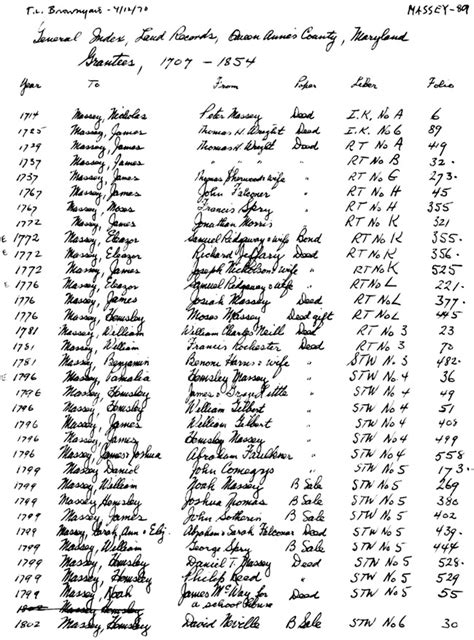 T.L. Brownyard - 4/12/70 MASSEY-89
General Index, Land Records, Queen Anne's County, Maryland
Grantees, 1707 - 1854
Year To From Paper Liber Folio
1714 Massey, Nicholas Peter Massey Deed I.K. No A 6
1725 Massey, James Thomas H. Wright Deed I.K. No 6 89
1729 Massey, James Thomas H. Wright Deed RT No A 419
1737 Massey, James " " " " RT No B 32
1737 Massey, James Thomas & wife " RT No G 273
1767 Massey, James John Falconer " RT No H 45
1767 Massey, Moses Francis Spry " RT No H 355
1772 Massey, James Jonathan Morris " RT No K 321
1772 Massey, Eleazor Samuel Ridgaway & wife Bond RT No K 355
1772 Massey, Eleazor Richard Deed RT No K 356
1772 Massey, James Joseph Nicholson & wife " RT No K 525
1776 Massey, Eleazor Samuel Ridgaway & wife " RT No L 221
1776 Massey, James Josiah Massey Deed RT No L 377
1776 Massey, Hemsley Moses Massey Deed gift RT No L 445
1781 Massey, William William Charles Neill Deed RT No 3 23
1781 Massey, William Francis Rochester Deed RT No 3 70
1781 Massey, Benjamin Benoni Harris & wife " STW No 3 482
1796 Massey, Hemsley Massey " STW No 4 36
1796 Massey, Hemsley James & " STW No 4 49
1796 Massey, Hemsley William Gilbert " STW No 4 51
1796 Massey, James William Gilbert " STW No 4
1796 Massey, James Hemsley Massey " STW No 4 499
1796 Massey, James Joshua Abraham Faulkner " STW No 4 558
1799 Massey Daniel John Comegys " STW No 5 173
1799 Massey, William Noah Massey B Sale STW No 5 269
1799 Massey Hemsley Joshua Thomas B Sale STW No 5 386
1799 Massey, James John B Sale STW No 5 402
1799 Massey, Sarah, Ann & Eliz. Abraham & Sarah Falconer Deed STW No 5 439
1799 Massey, William George Spry B Sale STW No 5 444
1799 Massey, Hemsley Daniel T. Massey Deed STW No 5 528
1799 Massey, Hemsley Philip Reed " STW No 5 529
1799 Massey, Noah James McWay for Deed STW No 5 55
1802 Massey Hemsley a school house
1802 Massey, Hemsley David Neville B Sale STW No 6 30